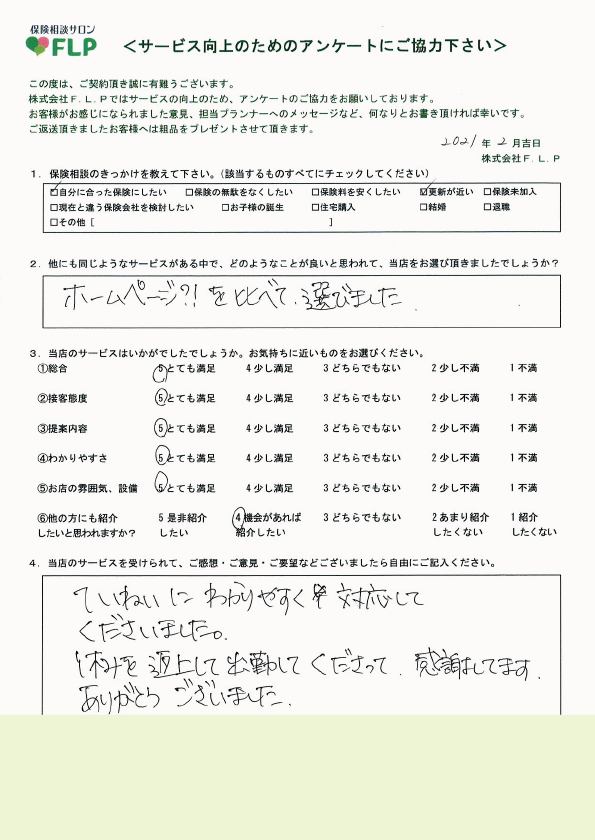 保険相談サロン
FLP
＜サービス向上のためのアンケートにご協力下さい＞
この度は、ご契約頂き誠に有難うございます。
株式会社Ｆ.Ｌ.Ｐではサービスの向上のため、アンケートのご協力をお願いしております。
お客様がお感じになられました意見、担当プランナーへのメッセージなど、何なりとお書き頂ければ幸いです。
ご返送頂きましたお客様へは粗品をプレゼントさせて頂きます。
2021 年 2 月吉日
株式会社Ｆ.Ｌ.Ｐ
１．保険相談のきっかけを教えて下さい。（該当するものすべてにチェックしてください）
☑自分に合った保険にしたい □保険の無駄をなくしたい □保険料を安くしたい ☑更新が近い □保険未加入
□現在と違う保険会社を検討したい □お子様の誕生 □住宅購入 □結婚 □退職
□その他［ ］
２．他にも同じようなサービスがある中で、どのようなことが良いと思われて、当店をお選び頂きましたでしょうか？
ホームページ?!を比べて、選びました.
３．当店のサービスはいかがでしたでしょうか。お気持ちに近いものをお選びください。
①総合 5 とても満足 4 少し満足 3 どちらでもない 2 少し不満 1 不満
②接客態度 5 とても満足 4 少し満足 3 どちらでもない 2 少し不満 1 不満
③提案内容 5 とても満足 4 少し満足 3 どちらでもない 2 少し不満 1 不満
④わかりやすさ 5 とても満足 4 少し満足 3 どちらでもない 2 少し不満 1 不満
⑤お店の雰囲気、設備 5 とても満足 4 少し満足 3 どちらでもない 2 少し不満 1 不満
⑥他の方にも紹介 5 是非紹介 4 機会があれば 3 どちらでもない 2 あまり紹介 1 紹介
したいと思われますか？ したい 紹介したい したくない したくない
４．当店のサービスを受けられて、ご感想・ご意見・ご要望などございましたら自由にご記入ください。
ていねいに わかりやすく 対応して
くださいました。
休みを返上して出勤してくださって、感謝してます.
ありがとうございました.